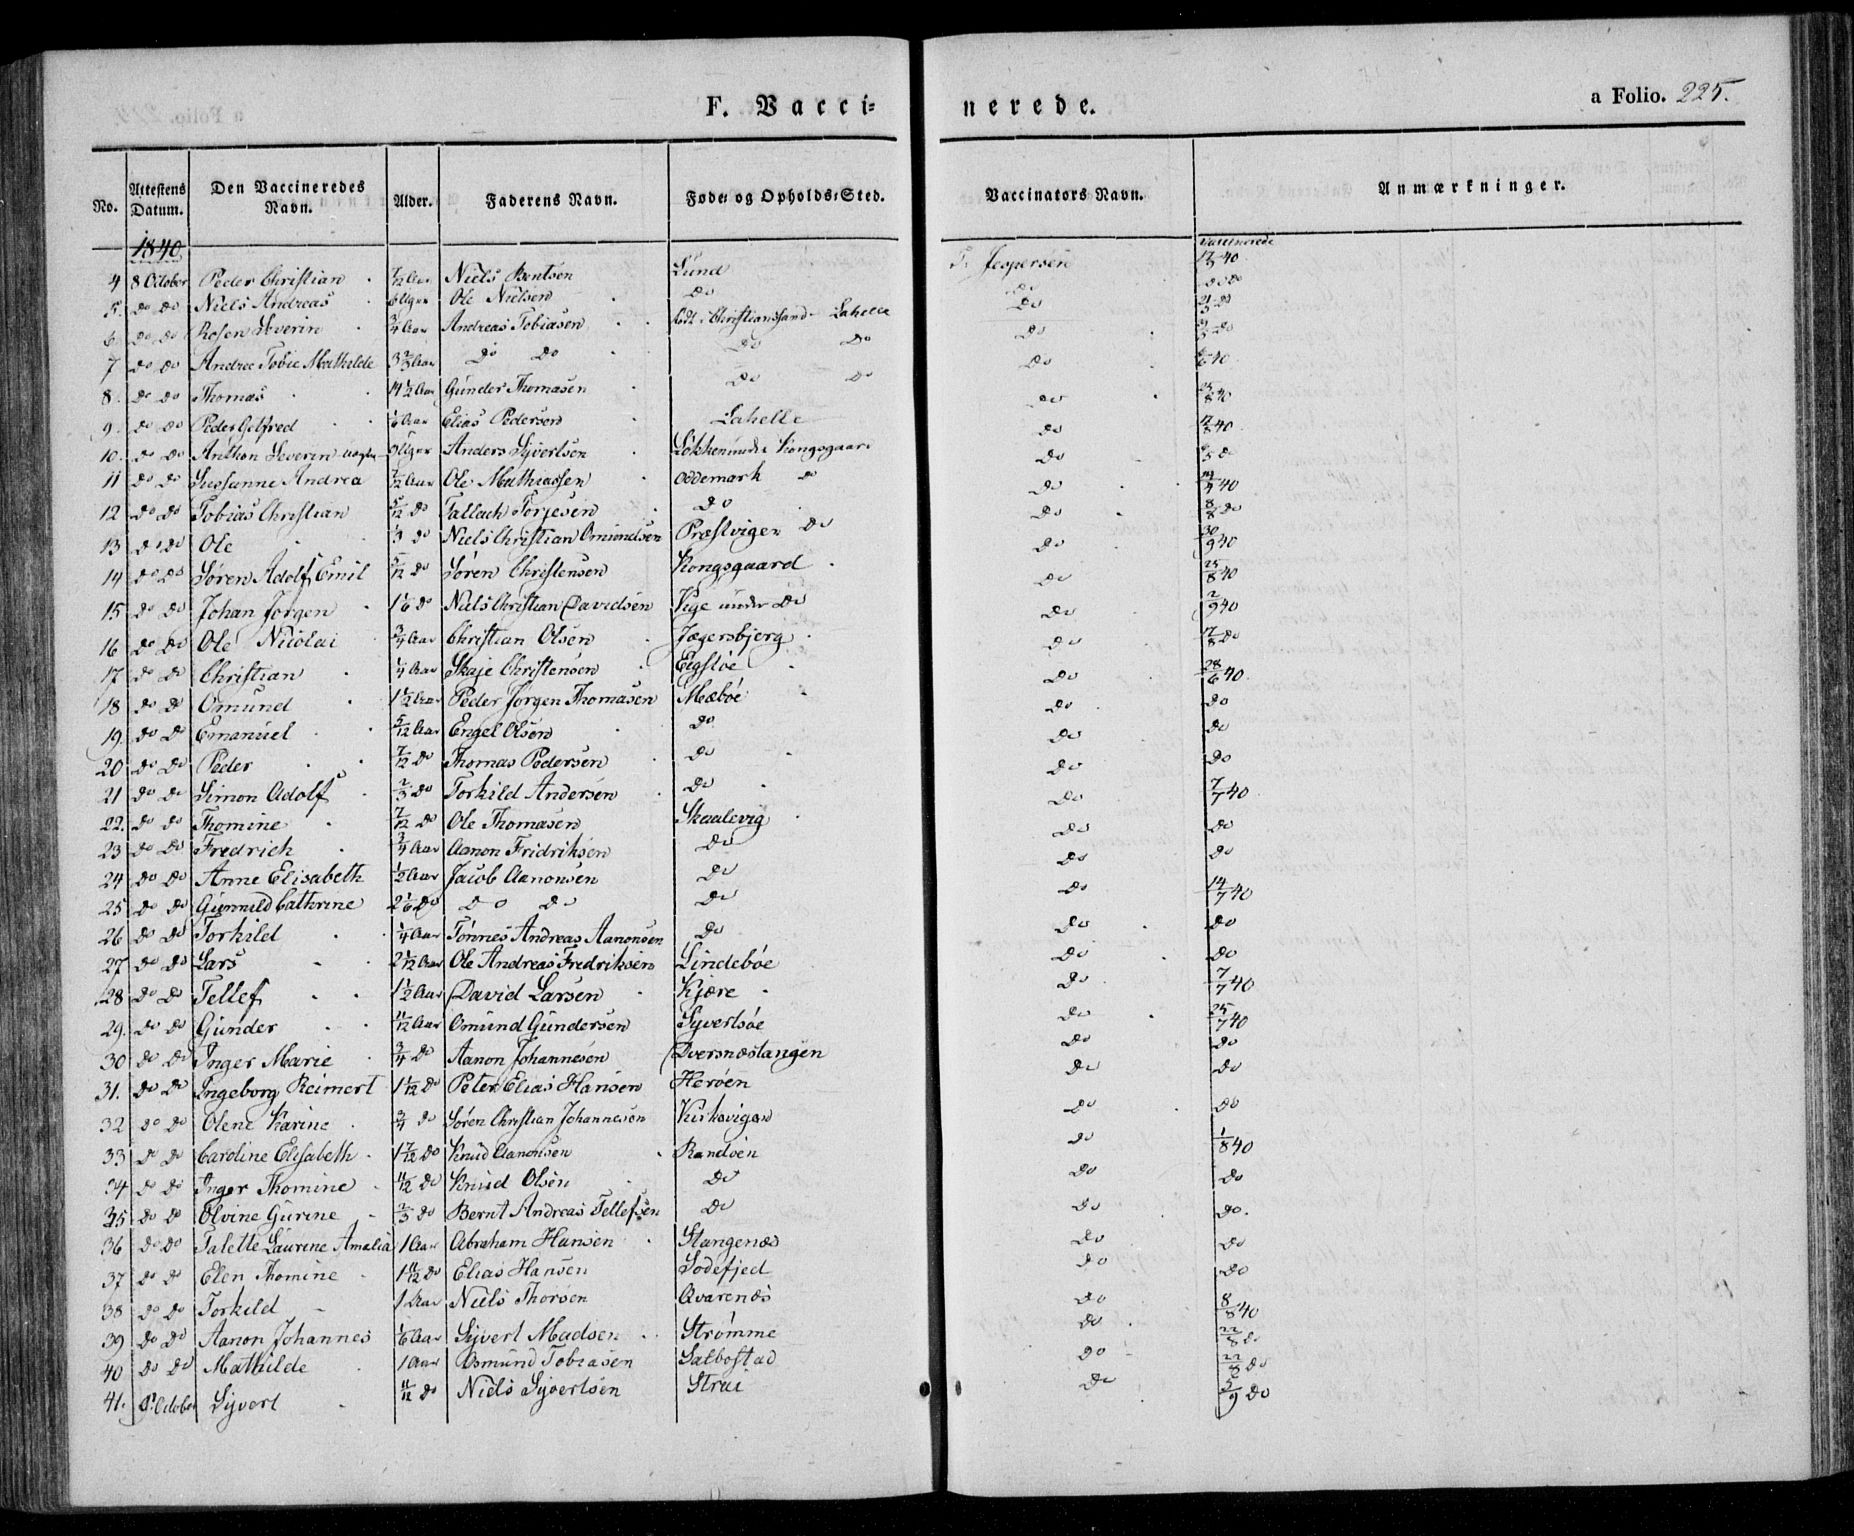 F. Vacci= nerede. a Folio. 225.
No. Attestens Datum. Den Vaccineredes Navn. Alder. Faderens Navn. Føde= og Opholds=Sted. Vaccinators Navn. Anmærkninger.
1840 Vaccinerede
4 8 October Peder Christian 7/12 Aar Niels Bentsen Lund Jespersen 17/8 40
5. do do Niels Andreas 6 Uger Ole Nielsen do do do do
6 do do Severin 3/4 Aar Andreas Tobiasen født i Christianssand - Lahelle do
7 do do Andrea Tobie Mathilde 3 2/3 Aar do do do do do
8. do do Thomas 14 1/2 Aar Gunder Thomasen do do do 40
9. do do Peder Gelfred 1/6 Aar Elias Pedersen Lahelle do 25/8 40
10. do do Anthon Severin Uger Anders Syvertsen Kongsgaard do 17/8 40
11 do do Susanne Andrea 7/12 Aar Ole Mathiassen Oddemark do do
12 do do Tobias Christian 5/12 do Tallach Torjesen do do 40
13 do do Ole 1/3 do Niels Christian Omundsen Præstvigen do do 8/8 do
14 do do Søren Adolf Emil 5/12 do Søren Christensen Kongsgaard do 30/9 40
15 do do Johan Jørgen 1 1/6 do Niels Christian Davidsen Vige under do do 25/8 40
16 do do Ole Nicolai 3/4 Aar Christian Olsen Jægersbjerg do 2/9 40
17 do do Christian 1/4 Aar Skaje Christensen Eegstøe do 17/8 do
18 do do Omund 1 1/2 Aar Peder Jørgen Thomasen Mæbøe do 28/6 40.
19. do do Emanuel 5/12 Aar Engel Olsen do do do
20 do do Peder 7/12 do Thomas Pedersen do do do
21 do do Simon Adolf 2/3 do Torkild Andersen do do do
22. do do Thomine 7/12 do Ole Thomasen Skaalevig do 7/7 40
23 do do Fredrich 3/4 Aar Aanon Fridriksen do do do
24 do do Anne Elisabeth 1/2 Aar Jacob Aanonsen do do do
25 do do Gunnild Cathrine 2 1/6 do do do do do 14/7 40
26 do do Torkild 1/4 Aar Tønnes Andreas Aanonsen do do do
27 do do Lars 2 1/12 Aar Ole Andreas Fredriksen Lindebøe do do
28 do do Tellef 1 1/2 Aar David Larsen Kjære do 7/7 40
29. do do Gunder 11/12 Aar Omund Gundersen Syvertsøe do 25/7 40
30 do do Inger Marie 3/4 do Aanon Johannesen Dversnæstangen do do
31. do do Ingeborg Reimert 1 1/12 do Peter Elias Hansen Herøen do do
32 do do Olene Karine 3/4 do Søren Christian Johannesen Kirkevigen do do
33 do do Caroline Elisabeth 1 7/12 do Knud Aanonsen Randøen do 1/8 40
34 do do Inger Thomine 11/12 do Knud Olsen do do do
35 do do Olvine Gurine 2/3 do Bernt Andreas Tellefsen do do do.
36 do do Talette Laurine Amalia 1 Aar Abraham Hansen Stangenæs do do
37 do do Elen Thomine 1 11/12 do Elias Hansen Sodefjed do do
38 do do Torkild 1 Aar Niels Thorsen Qvarenæs do 8/8 40
39 do do Aanon Johannes 1/6 Aar Syvert Madsen Strømme do 22/8 do
40 do do Mathilde 1 Aar Osmund Tobiasen Salbostad do 22/8 do
41. October Syvert 11/12 do Niels Syvertsen Strai do 5/9 do